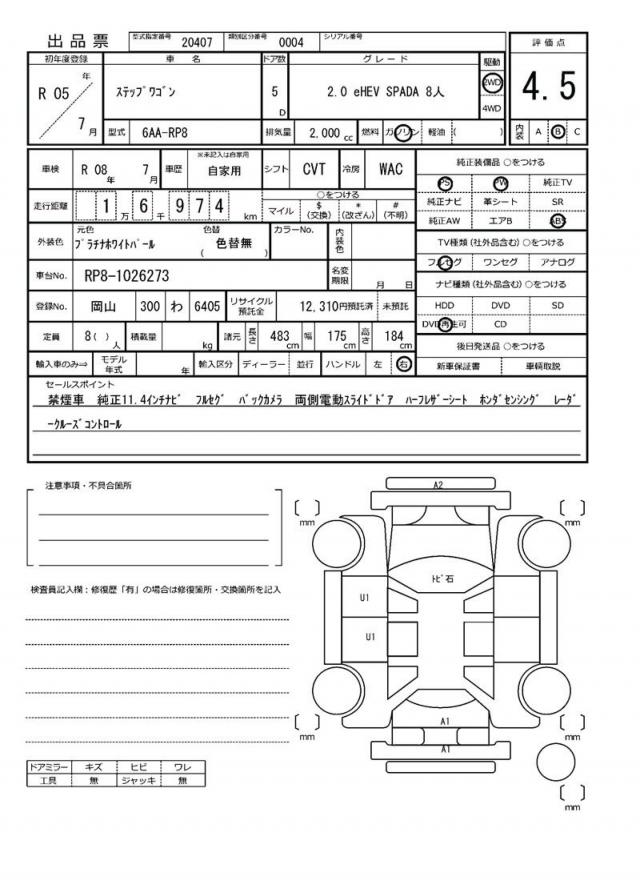 出品票 型式指定番号 20407 類別区分番号 0004 シリアル番号
初年度登録 車名 ドア数 グレード 駆動 評価点
R 05 年 7 月 ｽﾃｯﾌﾟﾜｺﾞﾝ 5 D 2.0 eHEV SPADA 8人 2WD 4WD 4.5
型式 6AA-RP8 排気量 2,000 cc 燃料 ガソリン 軽油 ( ) 内装 A B C
車検 R 08 年 7 月 車歴 ※未記入は自家用 自家用 シフト CVT 冷房 WAC 純正装備品 ○をつける
PS PW 純正TV
走行距離 1 万 6 千 9 7 4 km ○をつける 純正ナビ 革シート SR
マイル $ (交換) * (改ざん) # (不明) 純正AW エアB ABS
外装色 元色 ﾌﾟﾗﾁﾅﾎﾜｲﾄﾊﾟｰﾙ 色替 ( 色替無 ) カラーNo. 内装色 TV種類 (社外品含む) ○をつける
フルセグ ワンセグ アナログ
車台No. RP8-1026273 名変期限 月 日 ナビ種類 (社外品含む) ○をつける
登録No. 岡山 300 わ 6405 リサイクル預託金 12,310円預託済 未預託 HDD DVD SD
DVD再生可 CD
定員 8( ) 人 積載量 kg 諸元 長さ 483 cm 幅 175 cm 高さ 184 cm 後日発送品 ○をつける
輸入車のみ⇒ モデル年式 年 輸入区分 ディーラー 並行 ハンドル 左 右 新車保証書 車輌取説
セールスポイント
禁煙車 純正11.4ｲﾝﾁﾅﾋﾞ ﾌﾙｾｸﾞ ﾊﾞｯｸｶﾒﾗ 両側電動ｽﾗｲﾄﾞﾄﾞｱ ﾊｰﾌﾚｻﾞｰｼｰﾄ ﾎﾝﾀﾞｾﾝｼﾝｸﾞ ﾚｰﾀﾞ
ｰｸﾙｰｽﾞｺﾝﾄﾛｰﾙ
注意事項・不具合箇所
検査員記入欄：修復歴「有」の場合は修復箇所・交換箇所を記入
A2
mm mm
ﾄﾋﾞ石
U1
U1
A1
A1
mm mm
mm
ドアミラー キズ ヒビ ワレ
工具 無 ジャッキ 無